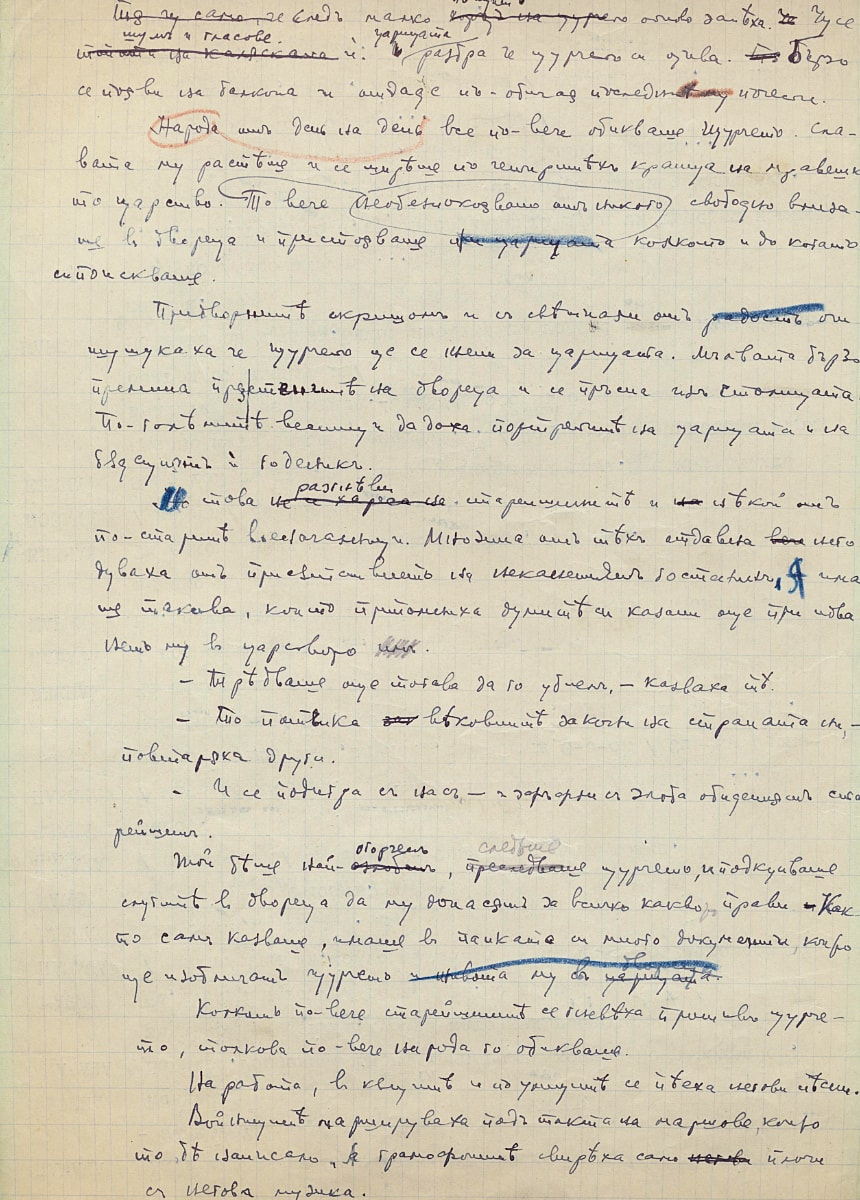 Тя чу само, че следъ малко хорът на щурчето отново запѣха. Чу се
шумъ и гласове. царицата разбра че щурчето си отива. Бързо
се появи на балкона и отдаде по-обичая последни почести.
Народа отъ день на день все по-вече обикваше щурчето. Сла-
вата му растѣше и се ширѣше по четиритѣхъ краища на мравешк
то царство. То вече необезпокоявано отъ никого свободно влиза-
ше в двореца и пристояваше при царицата колкото и до когато
си поискваше.
Придворнитѣ скришомъ и съ свѣтнали отъ радость очи
шушукаха че щурчето ще се жени за царицата. Мълвата бързо
премина през стенитѣ на двореца и се пръсна изъ столицата.
По-голѣмитѣ весници дадоха портретитѣ на царицата и на
бѫдещиятъ ѝ годеникъ.
Но това разгнѣви старейшинитѣ и на нѣкои отъ
по-старитѣ военачалници. Мнозина отъ тѣхъ отдавна него
дуваха отъ присѫтствието на неканениятъ гостенинъ, А има
ше такива, които припомниха думитѣ си казани още при идва
нето му в царството имъ.
– Трѣбваше още тогава да го убиемъ, – казваха тѣ.
– То потъпка вѣковнитѣ закони на страната ни, –
повтаряха други.
– И се подигра съ насъ, – изфърфли съ злоба обидениятъ ста
рейшина.
Той бѣше най-озлобенъ огорченъ, преследваше следѣше щурчето, и подкупваше
слугитѣ в двореца да му донасятъ за всичко какво прави. Как-
то самъ казваше, имаше в папката си много документи, които
ще изобличатъ щурчето и живота му въ двореца царицата.
Колкото по-вече старейшинитѣ се гневѣха противъ щурче-
то, толкова по-вече народа го обикваше.
На работа, в кѫщитѣ и по улицитѣ се пѣеха негови пѣсни.
Войницитѣ маршируваха подъ такта на маршове, които
то бѣ написало, А грамофонитѣ свирѣха само негови плочи
съ негова музика.